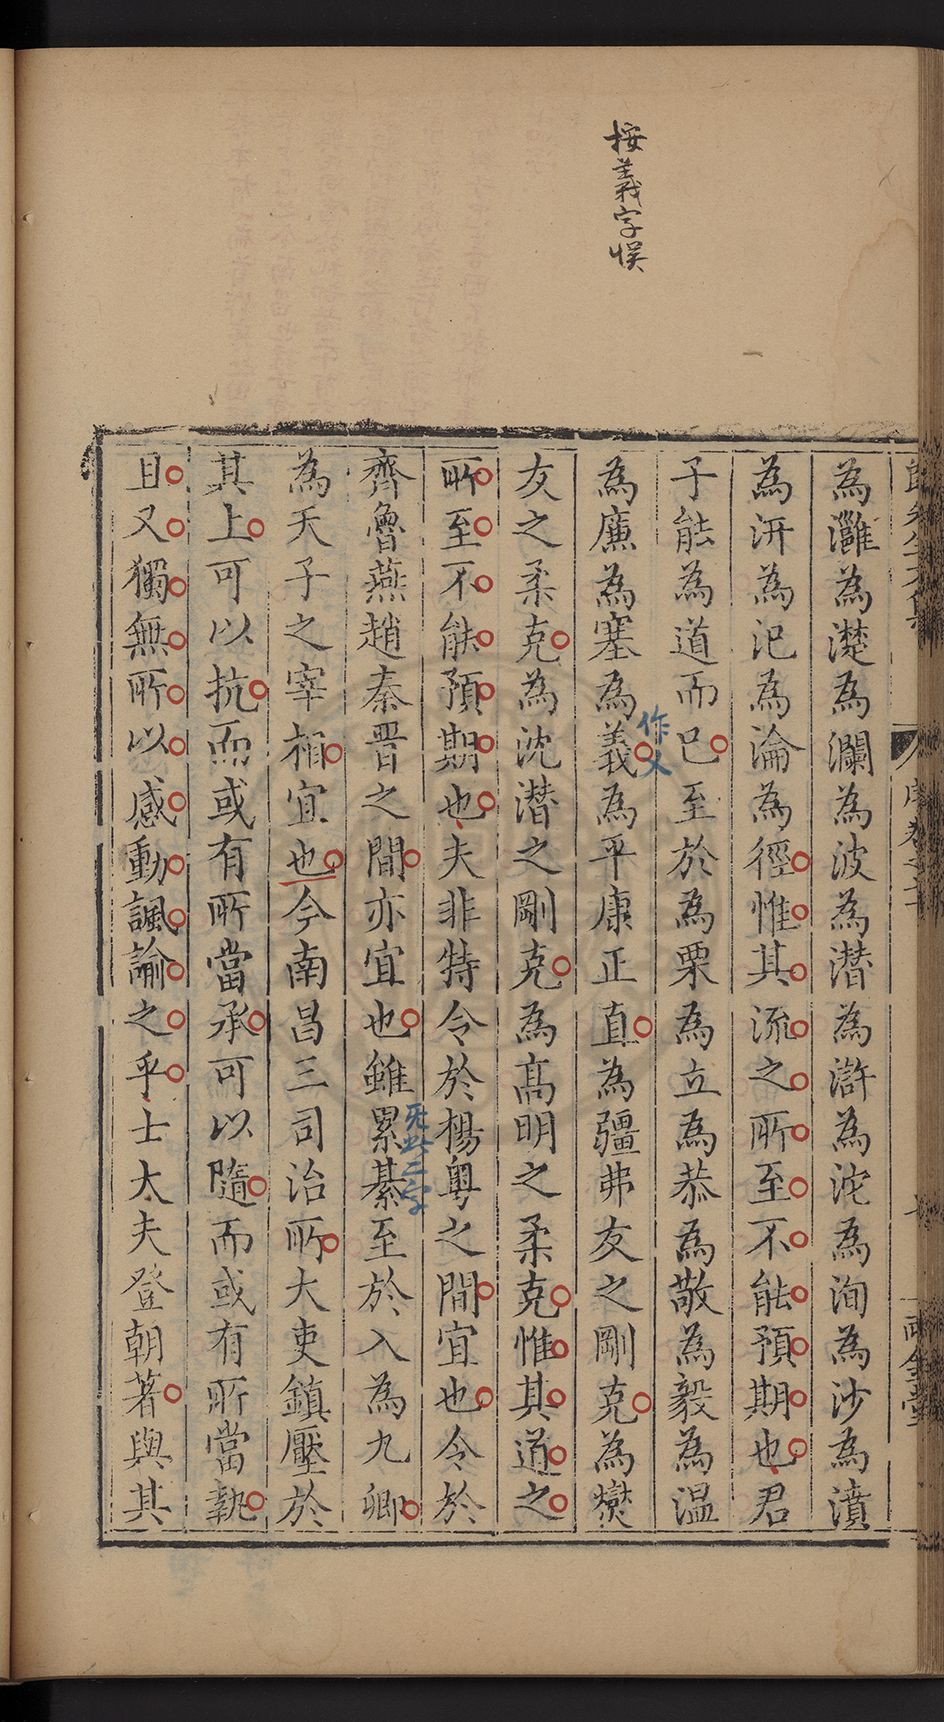 按義字悞
為灉為濋為瀾為波為潛為滸為沱為洵為沙為濆
為汧為汜為淪為徑惟其流之所至不能預期也君
子能為道而已至於為栗為立為恭為敬為毅為温
為廉為塞為義為平康正直為彊弗友之剛克為爕
作乂
友之柔克為沈潜之剛克為髙明之柔克惟其道之
所至不能預期也夫非特令於楊粤之間宜也令於
齊魯燕趙秦晋之間亦宜也雖累綦至於入為九卿
無此二字
為天子之宰相宜也今南昌三司治所大吏鎮壓於
其上可以抗而或有所當承可以隨而或有所當執
且又獨無所以感動諷諭之乎士大夫登朝著與其